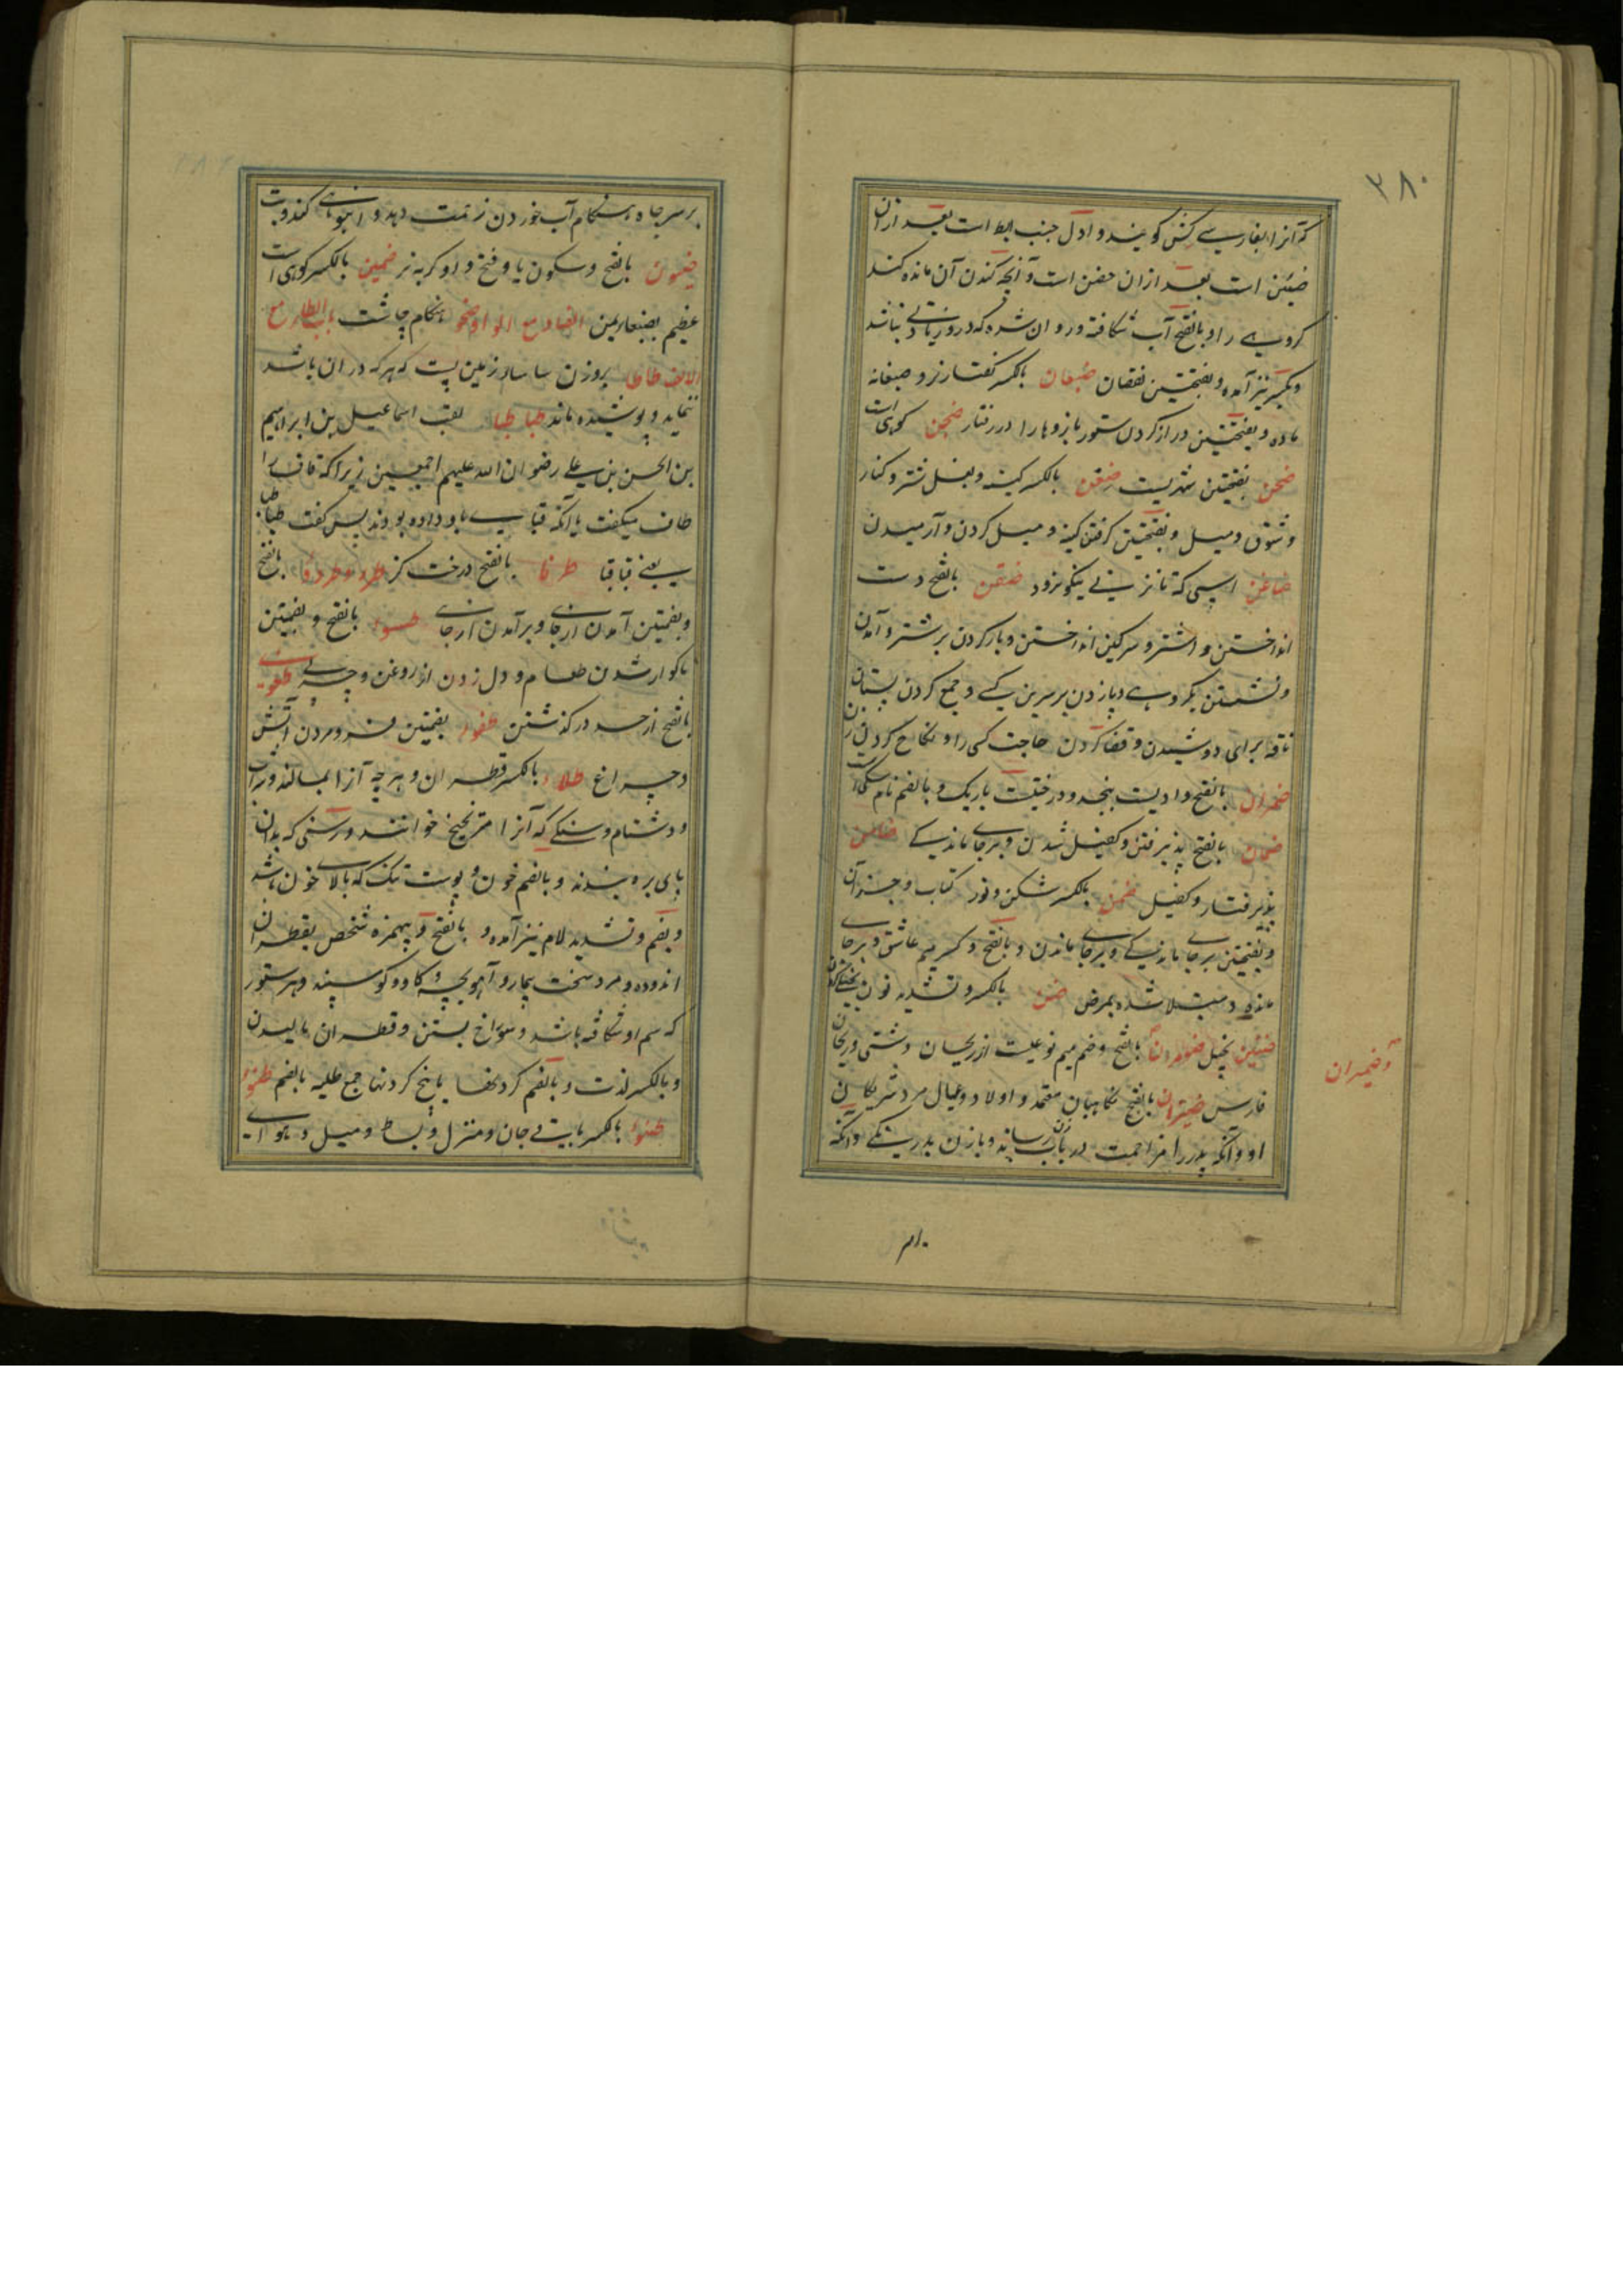 ۳۸۰
که آنرا بفارسی کش گویند و اول جنب ابط است بعد ازان
ضبن است بعد ازان حضن است و آنچه کندن آن مانده کند
گروهی را و بالفتح آب شکافته و روان شده که درو زیانی نباشد
و بکسر نیز آمده و بفتحتین نقصان ضبعان بالکسر کفتار نر و ضبعانه
ماده و بفتحتین دراز کردن ستور بازوها را در رفتار ضجن کوهی است
ضحن بفتحتین شهریست ضغن بالکسر کینه و بغل شتر و کنار
و شوق و میل و بفتحتین گرفتن کینه و میل کردن و آرمیدن
ضاغن اسپی که تا نزنی نیکو نرود ضفن بالفتح دست
انداختن و اشتر و سرگین انداختن و بار کردن بر شتر و آمدن
و نشستن بگروهی و پا زدن بر سرین کسی و جمع کردن پستان
ناقه برای دوشیدن و قضا کردن حاجت کسی را و نکاح کردن زن
ضمران بالفتح وادیست بنجد و درختیست باریک و بالضم نام سگی است
ضمان بالفتح پذیرفتن و کفیل شدن و برجای ماندگی ضامن
پذیرفتار و کفیل ضمن بالکسر شکن و نورد کتاب و جز آن
و بفتحتین برجای ماندگی و برجای ماندن و بالفتح و کسر میم عاشق و برجای
مانده و مبتلا شده بمرض ضن بالکسر و تشدید نون بخیلی کردن
ضنین بخیل ضومران بالفتح و ضم میم نوعیست از ریحان دشتی و ریحان
وضیمران
فارسی ضیزن بالفتح نگاهبان معتمد و اولاد و عیال مرد شریکان
او و آنکه پدر را مزاحمت در باب زن رساند و با زن پدر و آنکه
بر سر چاه هنگام آب خوردن زحمت دهد و انبوهی کند و بت
ضیون بالفتح و سکون یا و فتح واو گربه نر ضمین بالکسر کوهی است
عظیم بصنعا یمن الضاد مع الواو ضحو هنگام چاشت باب الطاء مع
الالف طاطا بروزن ساسا زمین پست که هر که دران باشد
ننماید و پوشیده ماند طباطبا لقب اسماعیل بن ابراهیم
بن الحسن بن علی رضوان الله علیهم اجمعین زیرا که قاف را
طا میگفت یا آنکه قبایی باو داده بودند پس گفت طباطبا
یعنی قباقبا طرفا بالفتح درخت گز طرد و طرو بالفتح
و بضمتین آمدن از جای و برآمدن از جای طسو بالفتح و بضمتین
ناگوار شدن طعام و دل زدن از روغن و چربی طغو
بالفتح از حد درگذشتن طفو بضمتین فرومردن آتش
و چراغ طلاء بالکسر قطران و هر چه آنرا بمالند و شراب
و دشنام و سنگی که آنرا خوانند و رسنی که بدان
پای بره بندند و بالضم خون و پوست تنک که بالای خون باشد
و بضم و تشدید لام نیز آمده و بالفتح و بیهمزه شخص بقطران
اندوده و مرد سخت بیمار و آهو بچه و گاو و گوسپند و هر ستور
که سم او شکافته باشد و سوراخ بستن و قطران مالیدن
و بالکسر لذت و بالضم گردنها یا بیخ گردنها جمع طلیه بالضم
طنو بالکسر باقی جان و منزل و بساط و میل و هوای